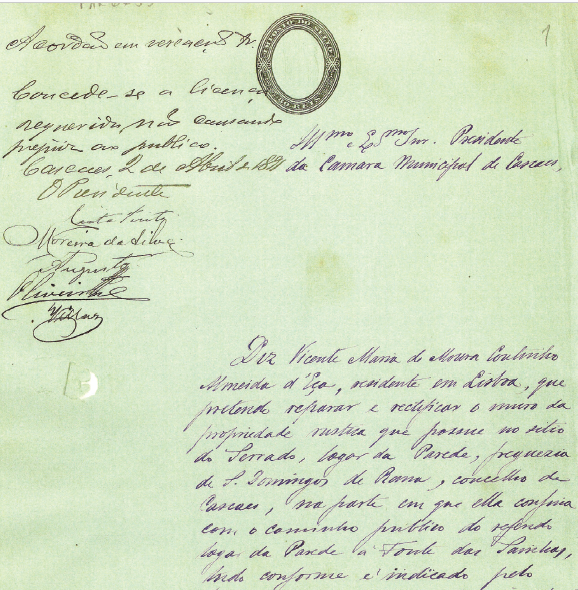 Acordão em vereação &c.
Concede-se a licença
requerida, não causando
prejuizo ao publico.
Cascaes, 2 de Abril de 1891
O Presidente
Costa Pinto
Moreira da Silva
Augusto
Oliveira
IMPOSTO DO SELLO
REIS
1
Illmo e Exmo Snr. Presidente
da Camara Municipal de Cascaes,
5
Diz Vicente Maria de Moura Coutinho
Almeida d'Eça, residente em Lisboa, que
pretende reparar e rectificar o muro da
propriedade rustica que possue no sitio
do Serrado, logar da Parede, freguezia
de S. Domingos de Rana, concelho de
Cascaes, na parte em que ella confina
com o caminho publico do referido
logar da Parede á Fonte das
tudo conforme é indicado pelo